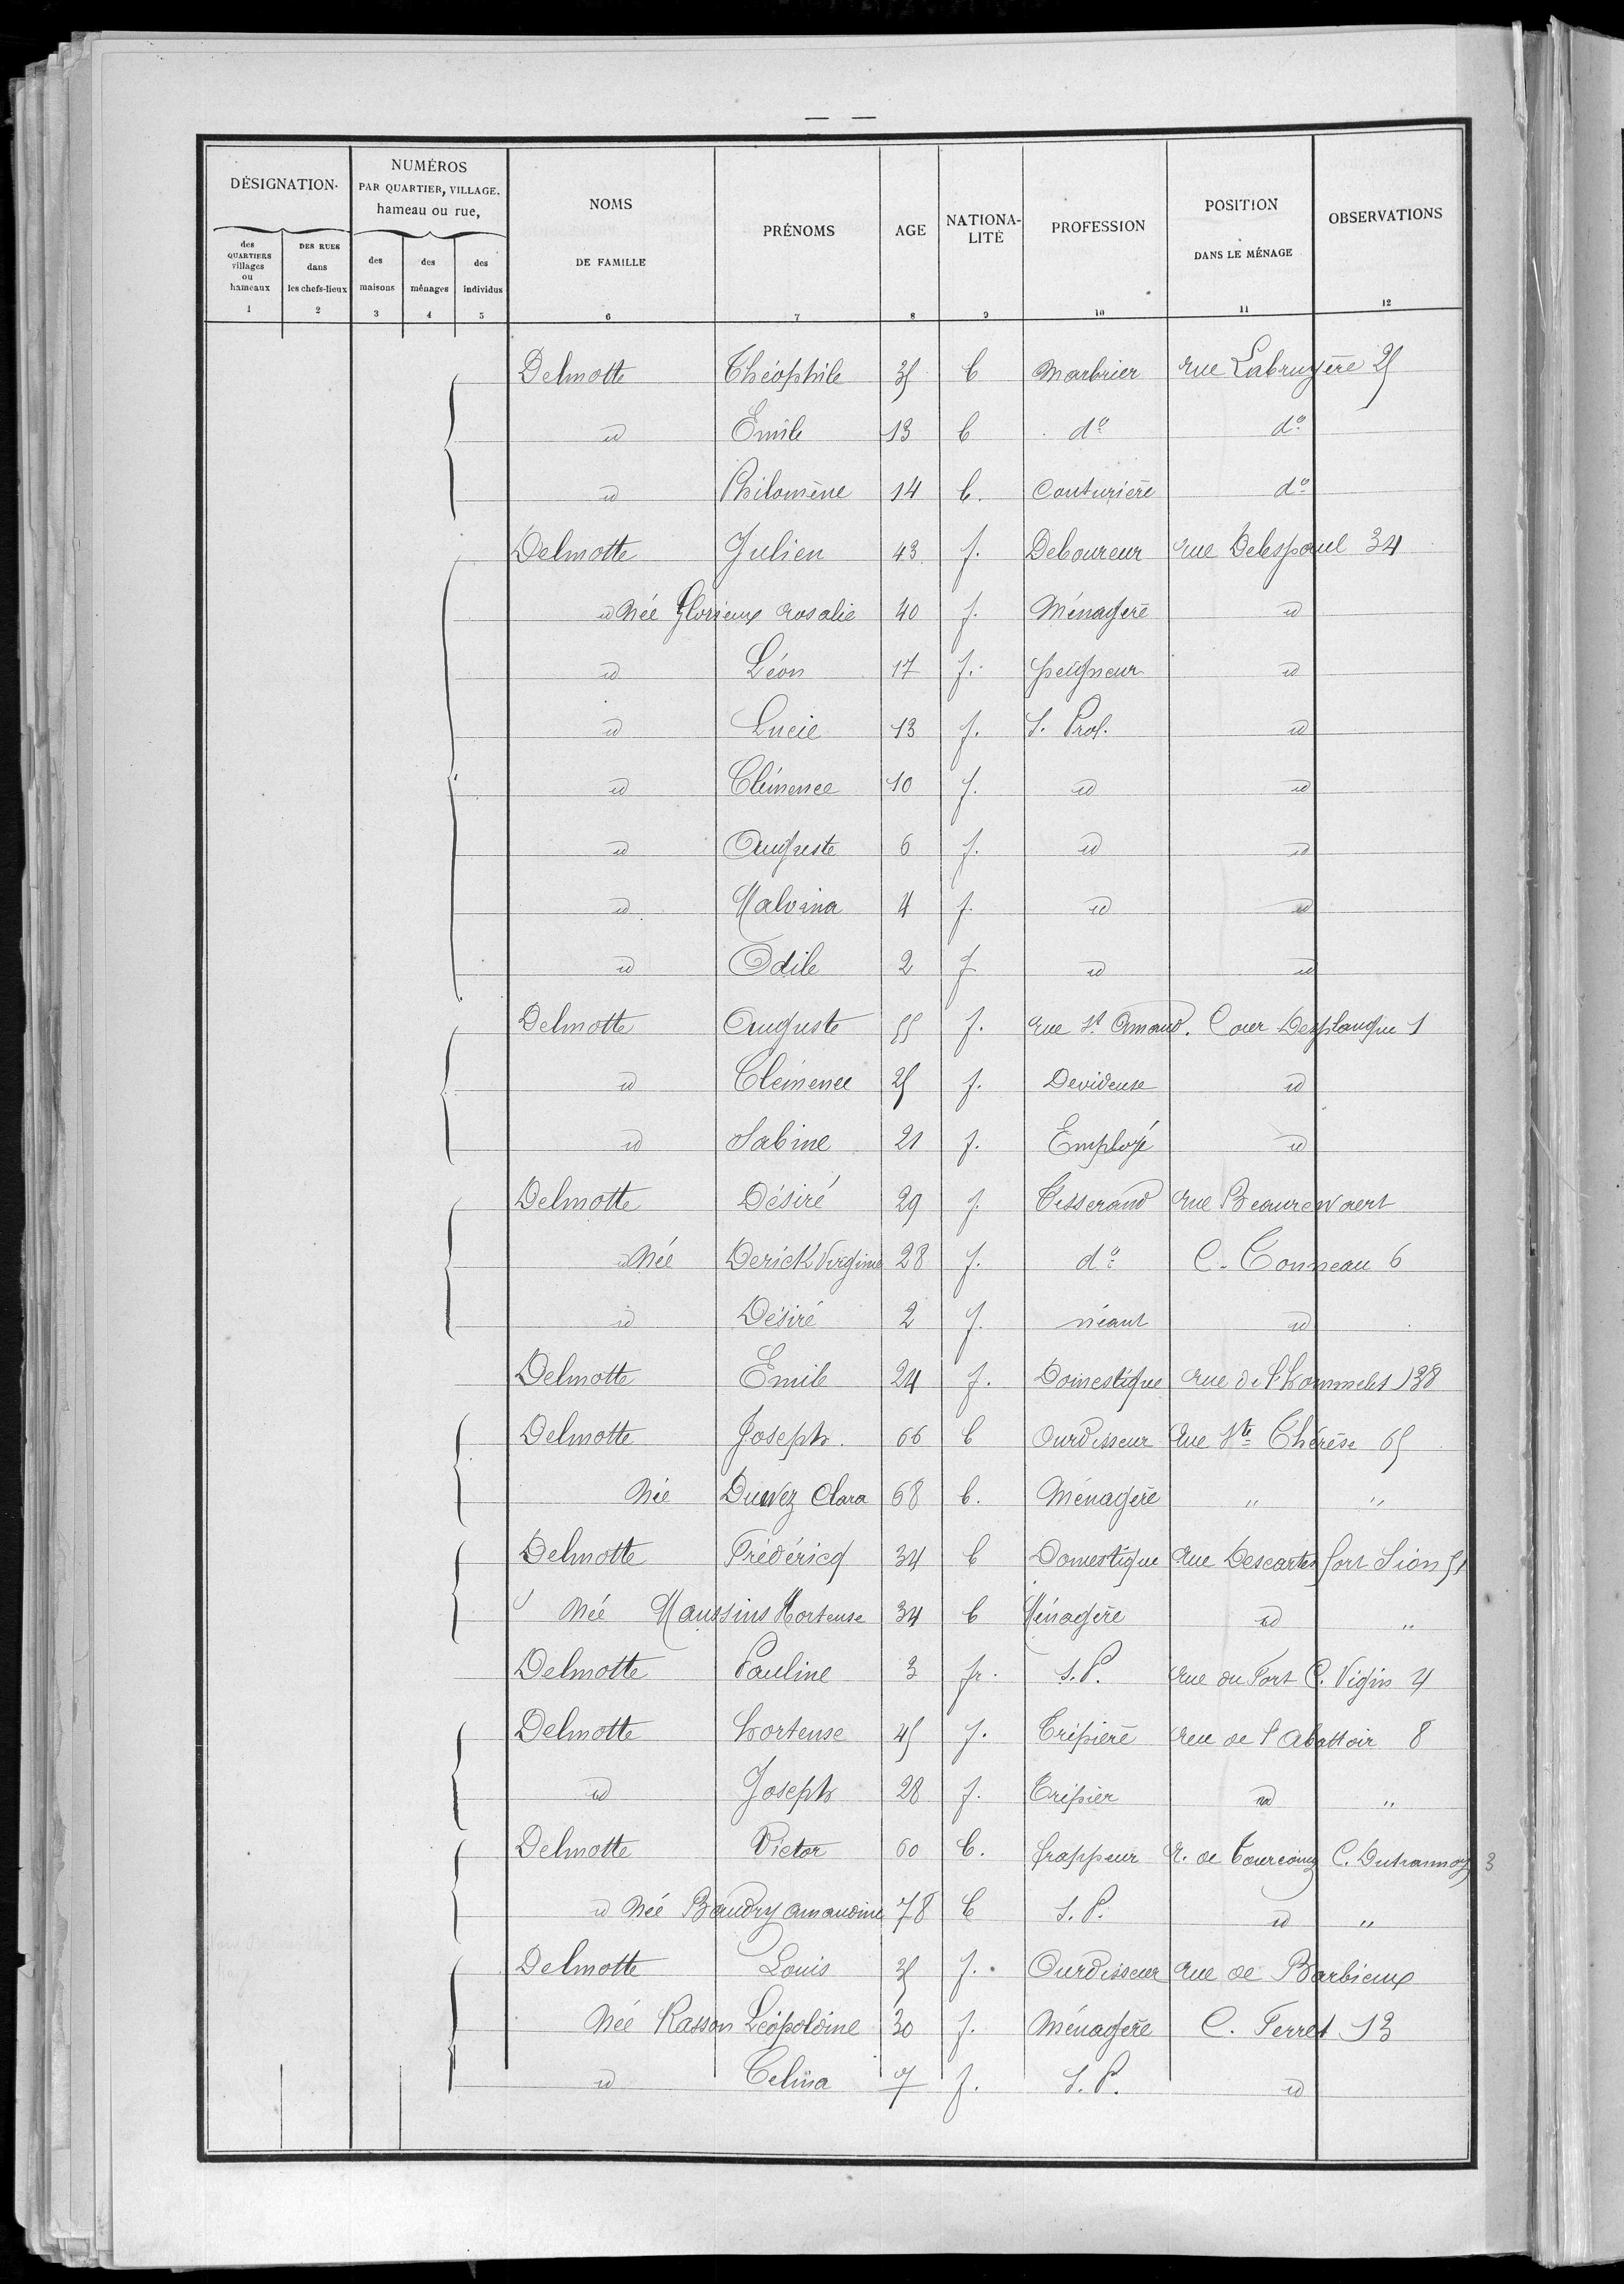 — —
DÉSIGNATION. NUMÉROS PAR QUARTIER, VILLAGE. hameau ou rue, NOMS DE FAMILLE PRÉNOMS AGE NATIONALITÉ PROFESSION POSITION DANS LE MÉNAGE OBSERVATIONS
des QUARTIERS villages ou hameaux DES RUES dans les chefs-lieux des maisons des ménages des individus
1 2 3 4 5 6 7 8 9 10 11 12
Delmotte Théophile 35 b Marbrier rue Labruyère 25
id Emile 13 b do do
id Philomène 14 b. Couturière do
Delmotte Julien 43 f. Deboureur rue Delespaul 34
id Née Glorieux Rosalie 40 f. Ménagère id
id Léon 17 f. peigneur id
id Lucie 13 f. S. Prof. id
id Clémence 10 f. id id
id Auguste 6 f. id id
id Malvina 4 f. id id
id Odile 2 f id id
Delmotte Auguste 55 f. rue St Amand. Cour Desplanque 1
id Clémence 25 f. Devideuse id
id Sabine 21 f. Employé id
Delmotte Désiré 29 f. Tisserand rue Beaurewaert
id Née Derick Virginie 28 f. do C. Conneau 6
id Désiré 2 f. néant id
Delmotte Emile 24 f. Domestique rue de l'hommelet 138
Delmotte Joseph 66 b Ourdisseur Rue Ste Thérèse 65
Née Duvez Clara 68 b. Ménagère " "
Delmotte Frédéricq 34 b Domestique Rue Descartes fort Sion 51
Née Maussins Hortense 34 b Ménagère id "
Delmotte Pauline 3 fr. S.P. rue du Fort C. Vigin 4
Delmotte hortense 45 f. Tripière rue de l'Abattoir 8
id Joseph 28 f. Tripier id "
Delmotte Victor 60 b. frappeur R. de Tourcoing C. Duhamnoy 3
id Née Baudry amandine 78 b S.P. id "
Delmotte Louis 35 f. Ourdisseur rue de Barbieux
Née Rasson Léopoldine 30 f. Ménagère C. Ferret 13
id Celina 7 f. S.P. id